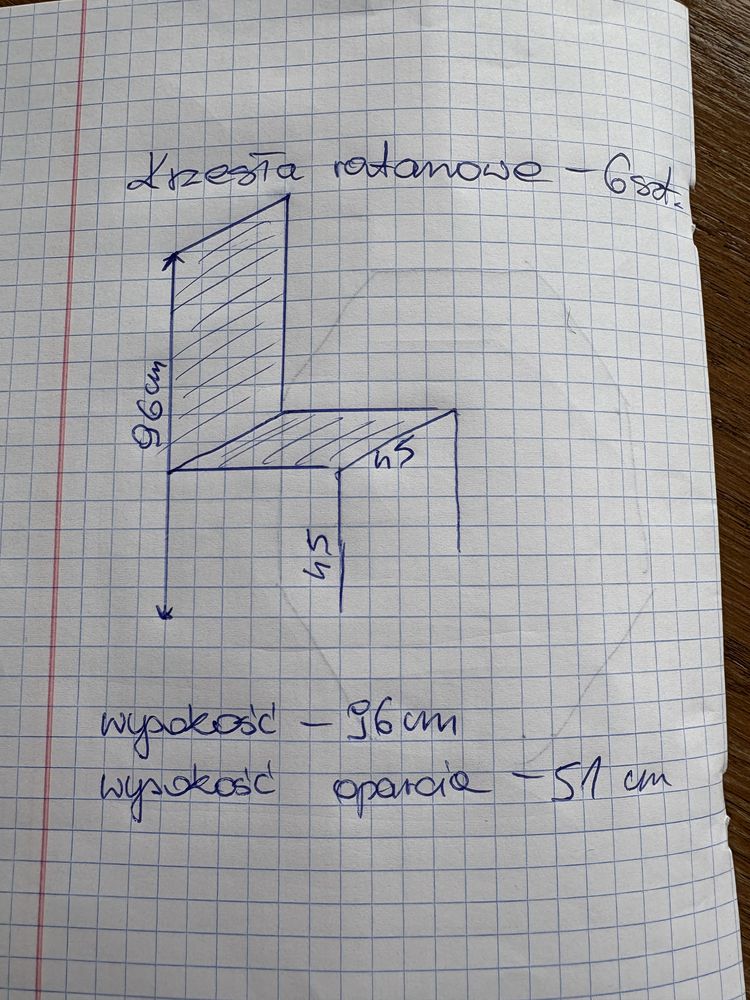 krzesła ratanowe - 6szt.
96cm
45
45
wysokość - 96cm
wysokość oparcia - 51 cm